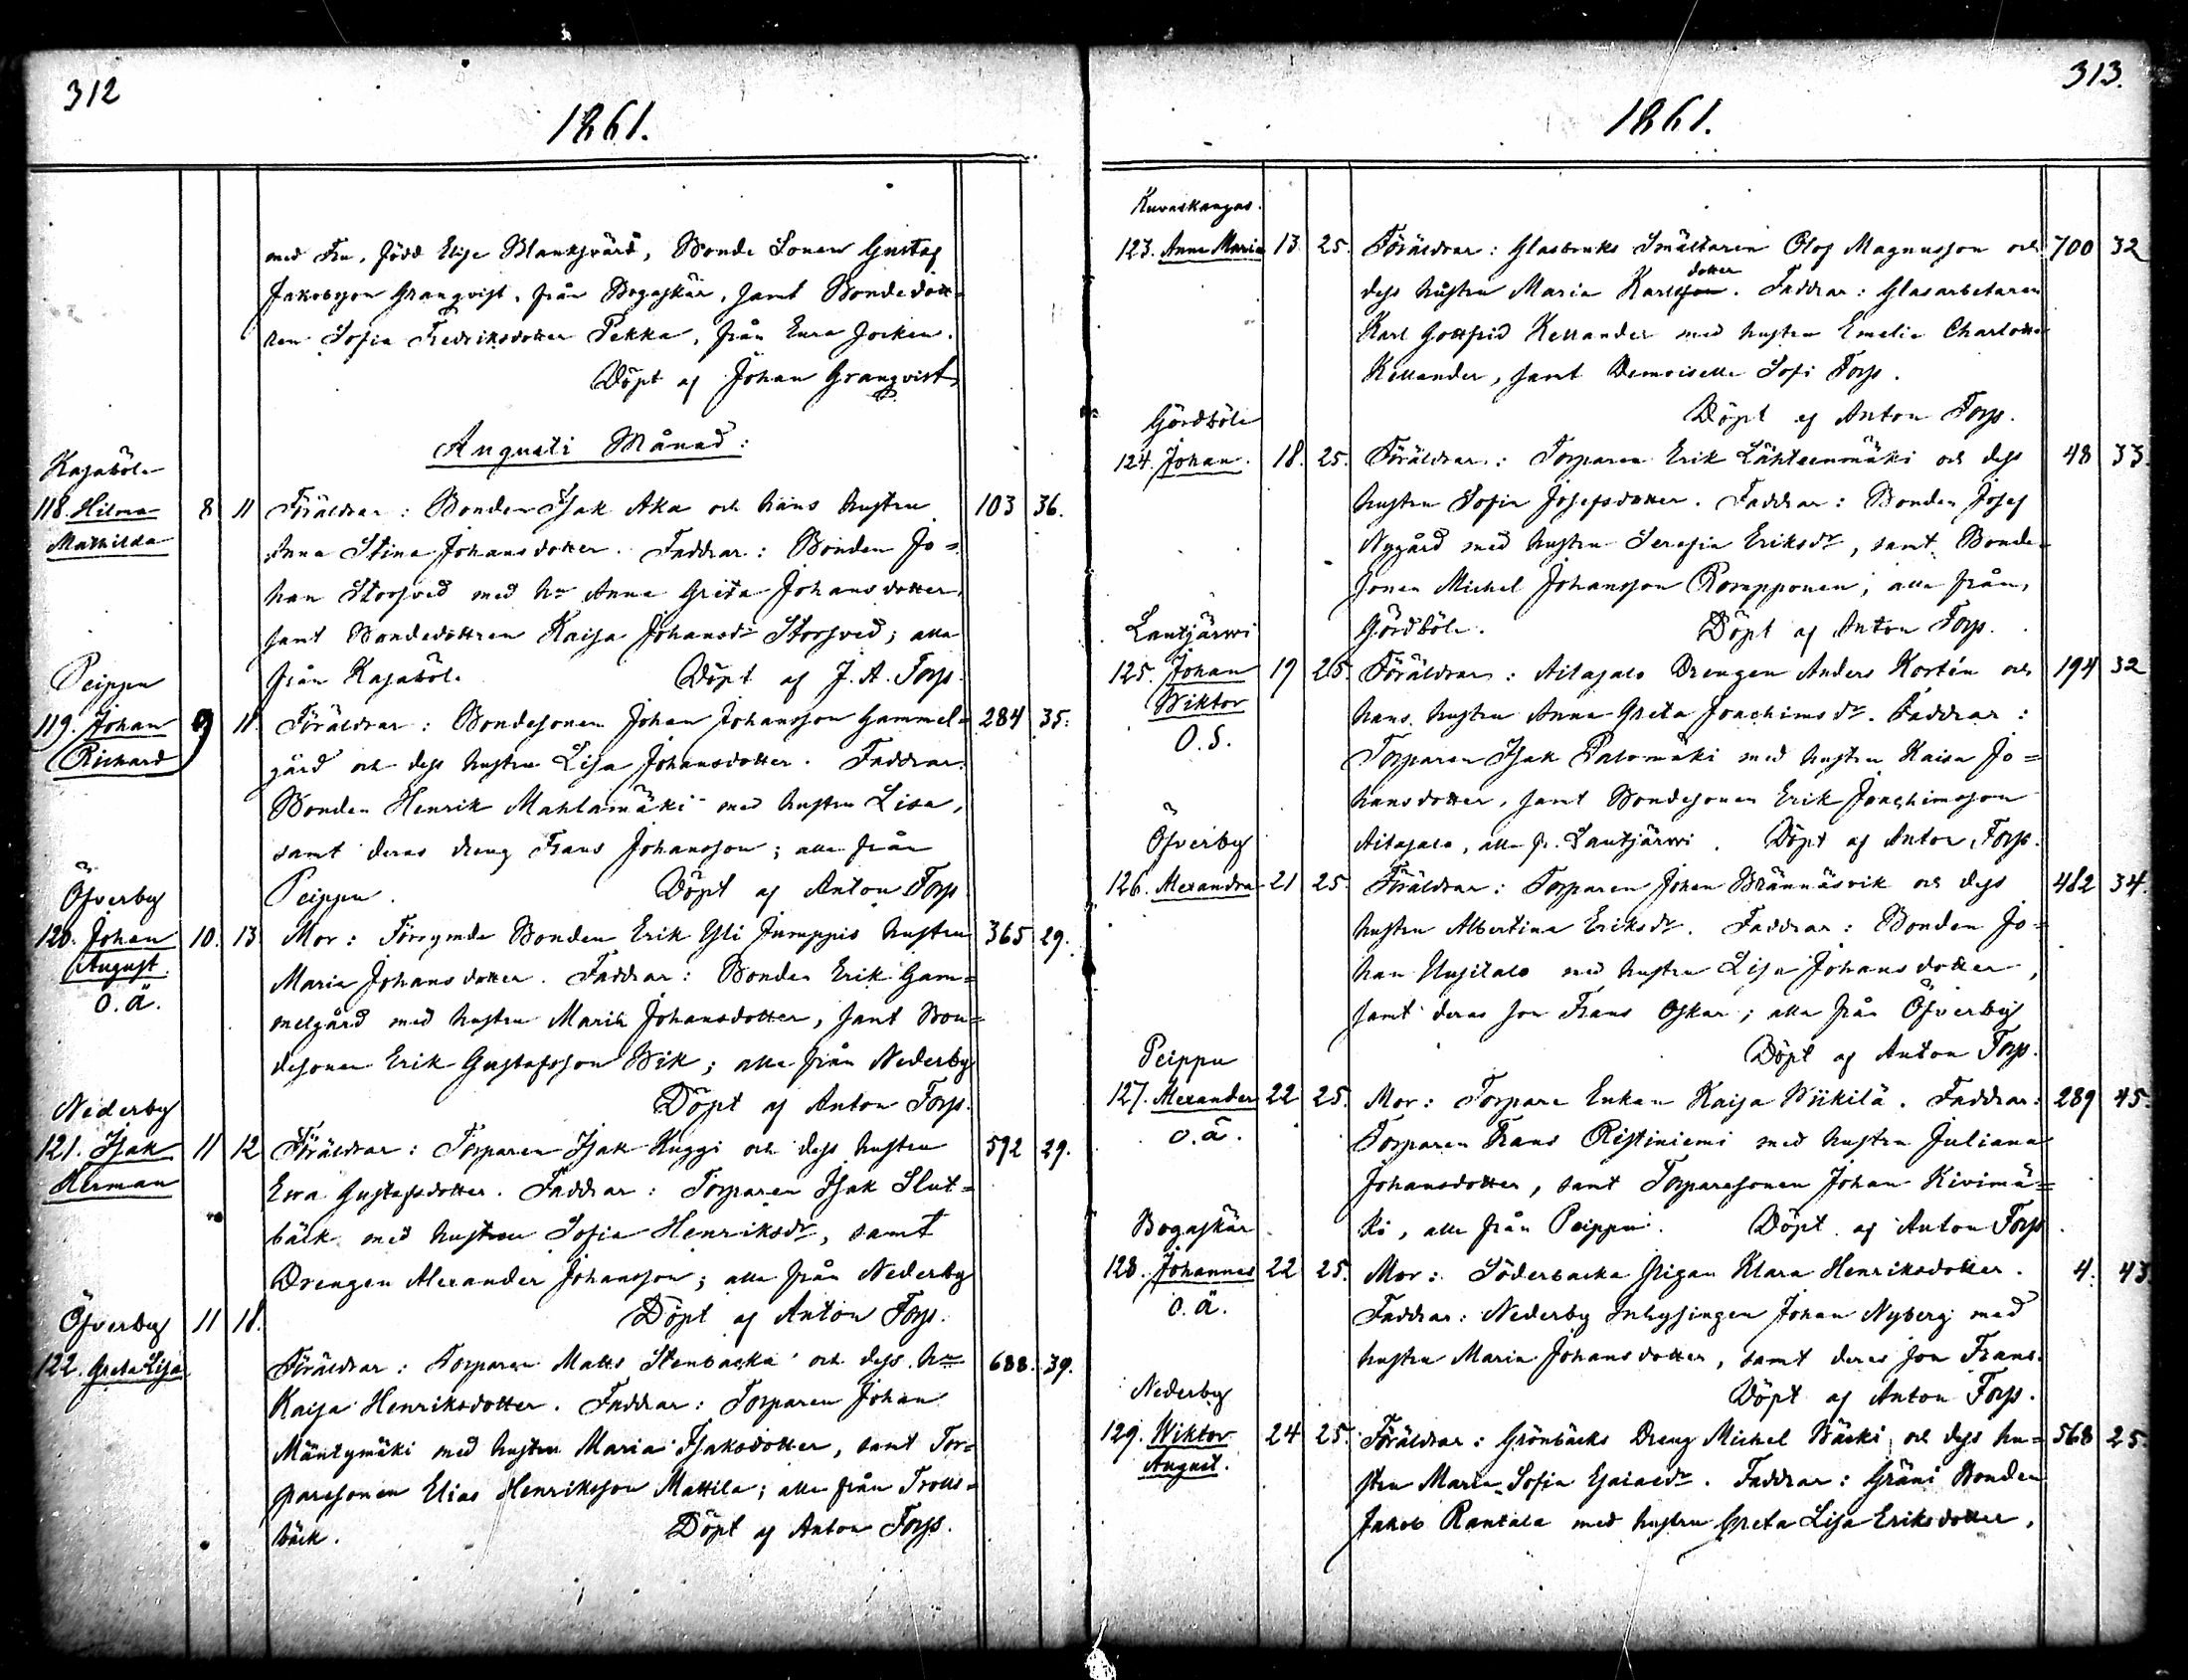 312
1861.
med Fru, född Elise Blanksvärd, Bonde Sonen Gustaf
Jakobsson Granqvist, från Bogaskär, samt Bondedott-
ren Sofia Fredriksdotter Pekka, från Eura Socken.
Döpt af Johan Granqvist
Augusti Månad:
Kasaböle
118. Hilma 8 11 Föräldrar: Bonden Isak Aka och hans hustru 103 36.
Mathilda Anna Stina Johansdotter. Faddrar: Bonden Jo=
han Storsved med hu Anna Greta Johansdotter,
samt Bondedottren Kaisa Johansdr Storsved; alla
från Kasaböle Döpt af J. A. Forss.
Peippu
119. Johan 9 11. Föräldrar: Bondesonen Johan Johansson Gammel= 284 35.
Richard gård och dess hustru Lisa Johansdotter. Faddrar:
Bonden Henrik Mahlamäki med hustru Lisa,
samt deras dreng Frans Johansson; alla från
Peippu. Döpt af Anton Forss
Öfverby
120. Johan 10. 13 Mor: Förrymde Bonden Erik Yli Jumppis hustru 365 29.
August Maria Johansdotter. Faddrar: Bonden Erik Gam=
o. ä. melgård med hustru Maria Johansdotter, samt Bon=
desonen Erik Gustafsson Wik; alla från Nederby
Döpt af Anton Forss.
Nederby
121. Isak 11 12 Föräldrar: Torparen Isak Kuggi och dess hustru 592 29.
Herman Ewa Gustafsdotter. Faddrar: Torparen Isak Slut=
bäck med hustru Sofia Henriksdr, samt
Drengen Alexander Johansson; alla från Nederby
Döpt af Anton Forss.
Öfverby 11 18.
122. Greta Lisa Föräldrar: Torparen Matts Stenbacka och dess hu 688. 39.
Kaisa Henriksdotter. Faddrar: Torparen Johan
Mäntymäki med hustru Maria Isaksdotter, samt Tor=
paresonen Elias Henriksson Mattila; alla från Trolls=
bäck. Döpt af Anton Forss.
313.
1861.
Kuvaskangas.
123. Anna Maria 13 25. Föräldrar: Glasbruks Smältaren Olof Magnusson och 700 32
dotter
dess hustru Maria Karlsson. Faddrar: Glasarbetaren
Karl Gottfrid Kellander med hustru Emelie Charlotta
Kellander, samt Demoiselle Sofi Forss.
Döpt af Anton Forss.
Gördböle
124. Johan. 18. 25. Föräldrar: Torparen Erik Lähteenmäki och dess 48 33.
hustru Sofia Josefsdotter. Faddrar: Bonden Josef
Nygård med hustru Serafia Eriksdr, samt Bonde-
sonen Michel Johansson Rompponen; alla från,
Gördböle. Döpt af Anton Forss.
Lautjärwi
125. Johan 19 25. Föräldrar: Aitasalo Drengen Anders Kortén och 194 32
Wiktor hans hustru Anna Greta Joachimsdr. Faddrar:
O. S. Torparen Isak Palomäki med hustru Kaisa Jo=
hansdotter, samt Bondesonen Erik Joachimsson
Aitasalo, alla fr. Lautjärwi. Döpt af Anton Forss.
Öfverby
126. Alexandra 21 25. Föräldrar: Torparen Johan Brännäsvik och dess 482 34.
hustru Albertina Eriksdr. Faddrar: Bonden Jo=
han Uusitalo med hustru Lisa Johansdotter,
samt deras son Frans Oskar; alla från Öfverby
Döpt af Anton Forss.
Peippu
127. Alexander 22 25. Mor: Torpare Enkan Kaisa Wiikilä. Faddrar: 289 45.
o. ä. Torparen Frans Ristiniemi med hustru Juliana
Johansdotter, samt Torparesonen Johan Kivimä=
ki, alla från Peippu. Döpt af Anton Forss.
Bogaskär
128. Johannes 22 25. Mor: Söderbacka Pigan Klara Henriksdotter. 4. 43
o. ä. Faddrar: Nederby Inhysingen Johan Nyberg med
hustru Maria Johansdotter, samt deras son Frans.
Döpt af Anton Forss.
Nederby
129. Wiktor 24 25. Föräldrar: Grönbäcks Dreng Michel Bäcki och dess hu= 568 25.
August. stru Maria Sofia Esaiaedr. Faddrar: Gräni Bonden
Jakob Rantala med hustru Greta Lisa Eriksdotter,